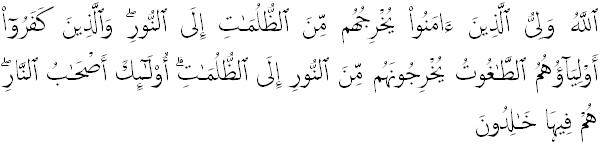 ٱللَّهُ وَلِىُّ ٱلَّذِينَ ءَامَنُوا۟ يُخْرِجُهُم مِّنَ ٱلظُّلُمَـٰتِ إِلَى ٱلنُّورِ ۖ وَٱلَّذِينَ كَفَرُوٓا۟
أَوْلِيَآؤُهُمُ ٱلطَّـٰغُوتُ يُخْرِجُونَهُم مِّنَ ٱلنُّورِ إِلَى ٱلظُّلُمَـٰتِ ۗ أُو۟لَـٰٓئِكَ أَصْحَـٰبُ ٱلنَّارِ ۖ
هُمْ فِيهَا خَـٰلِدُونَ